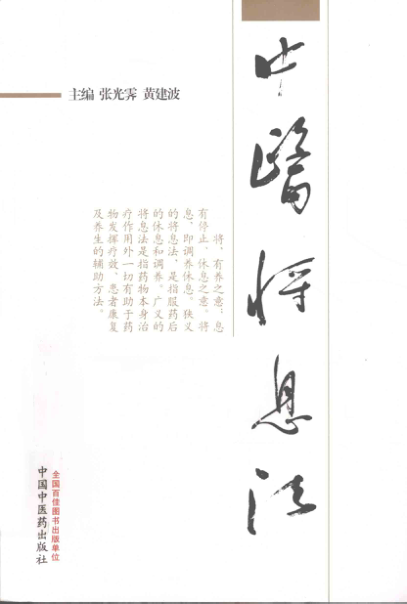 中醫将息法
主编 张光霁 黄建波
将，有养之意；息
有停止、休息之意。将
息，即调养休息。狭义
的将息法，是指服药后
的休息和调养。广义的
将息法是指药物本身治
疗作用外一切有助于药
物发挥疗效、患者康复
及养生的辅助方法。
全国百佳图书出版单位
中国中医药出版社